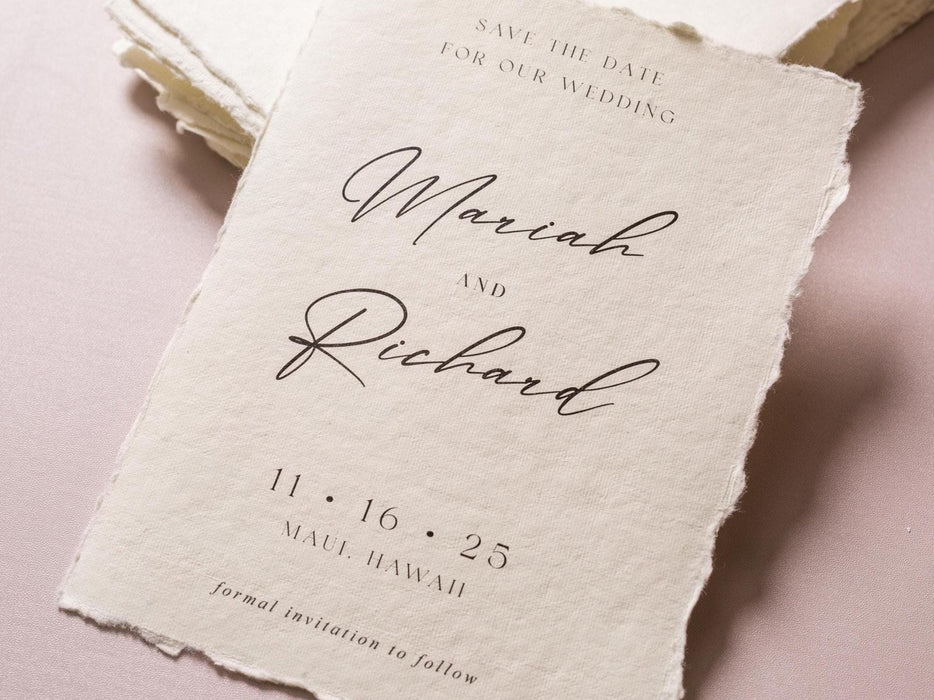 SAVE THE DATE
FOR OUR WEDDING
Mariah
AND
Richard
11 • 16 • 25
MAUI, HAWAII
formal invitation to follow